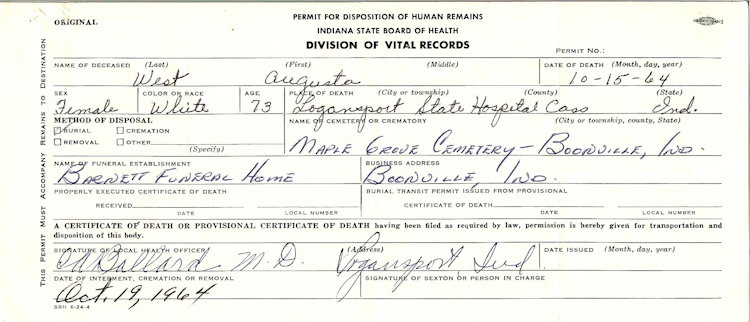 ORIGINAL
PERMIT FOR DISPOSITION OF HUMAN REMAINS
INDIANA STATE BOARD OF HEALTH
DIVISION OF VITAL RECORDS
PERMIT NO.:
THIS PERMIT MUST ACCOMPANY REMAINS TO DESTINATION
NAME OF DECEASED (Last) (First) (Middle) DATE OF DEATH (Month, day, year)
West Augusta 10-15-64
SEX COLOR OR RACE AGE PLACE OF DEATH (City or township) (County) (State)
Female White 73 Logansport State Hospital Cass Ind.
METHOD OF DISPOSAL NAME OF CEMETERY OR CREMATORY (City or township, county, State)
BURIAL CREMATION
REMOVAL OTHER
(Specify)
MAPLE GROVE CEMETERY - BOONVILLE, IND.
NAME OF FUNERAL ESTABLISHMENT BUSINESS ADDRESS
BARNETT FUNERAL HOME BOONVILLE IND.
PROPERLY EXECUTED CERTIFICATE OF DEATH BURIAL TRANSIT PERMIT ISSUED FROM PROVISIONAL
RECEIVED CERTIFICATE OF DEATH:
DATE LOCAL NUMBER DATE LOCAL NUMBER
A CERTIFICATE OF DEATH OR PROVISIONAL CERTIFICATE OF DEATH having been filed as required by law, permission is hereby given for transportation and
disposition of this body.
SIGNATURE OF LOCAL HEALTH OFFICER (Address) DATE ISSUED (Month, day, year)
Ballard M.D. Logansport Ind.
DATE OF INTERMENT, CREMATION OR REMOVAL SIGNATURE OF SEXTON OR PERSON IN CHARGE
Oct. 19, 1964
SBH 6-24-4